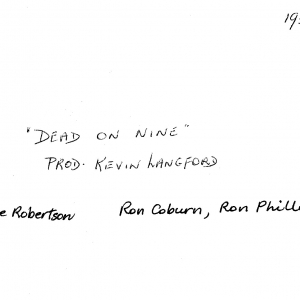 "DEAD ON NINE"
PROD. KEVIN LANGFORD
Robertson Ron Coburn, Ron